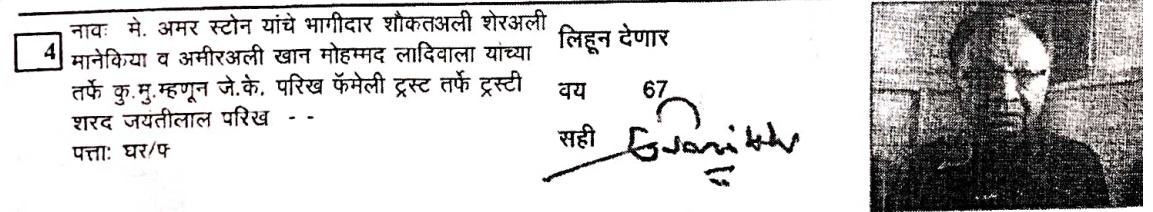 4
नावः मे. अमर स्टोन यांचे भागीदार शौकतअली शेरअली
मानेकिया व अमीरअली खान मोहम्मद लादिवाला यांच्या
तर्फे कु.मु.म्हणून जे.के. परिख फॅमेली ट्रस्ट तर्फे ट्रस्टी
शरद जयंतीलाल परिख - -
पत्ताः घर/फ्
लिहून देणार
वय 67
सही